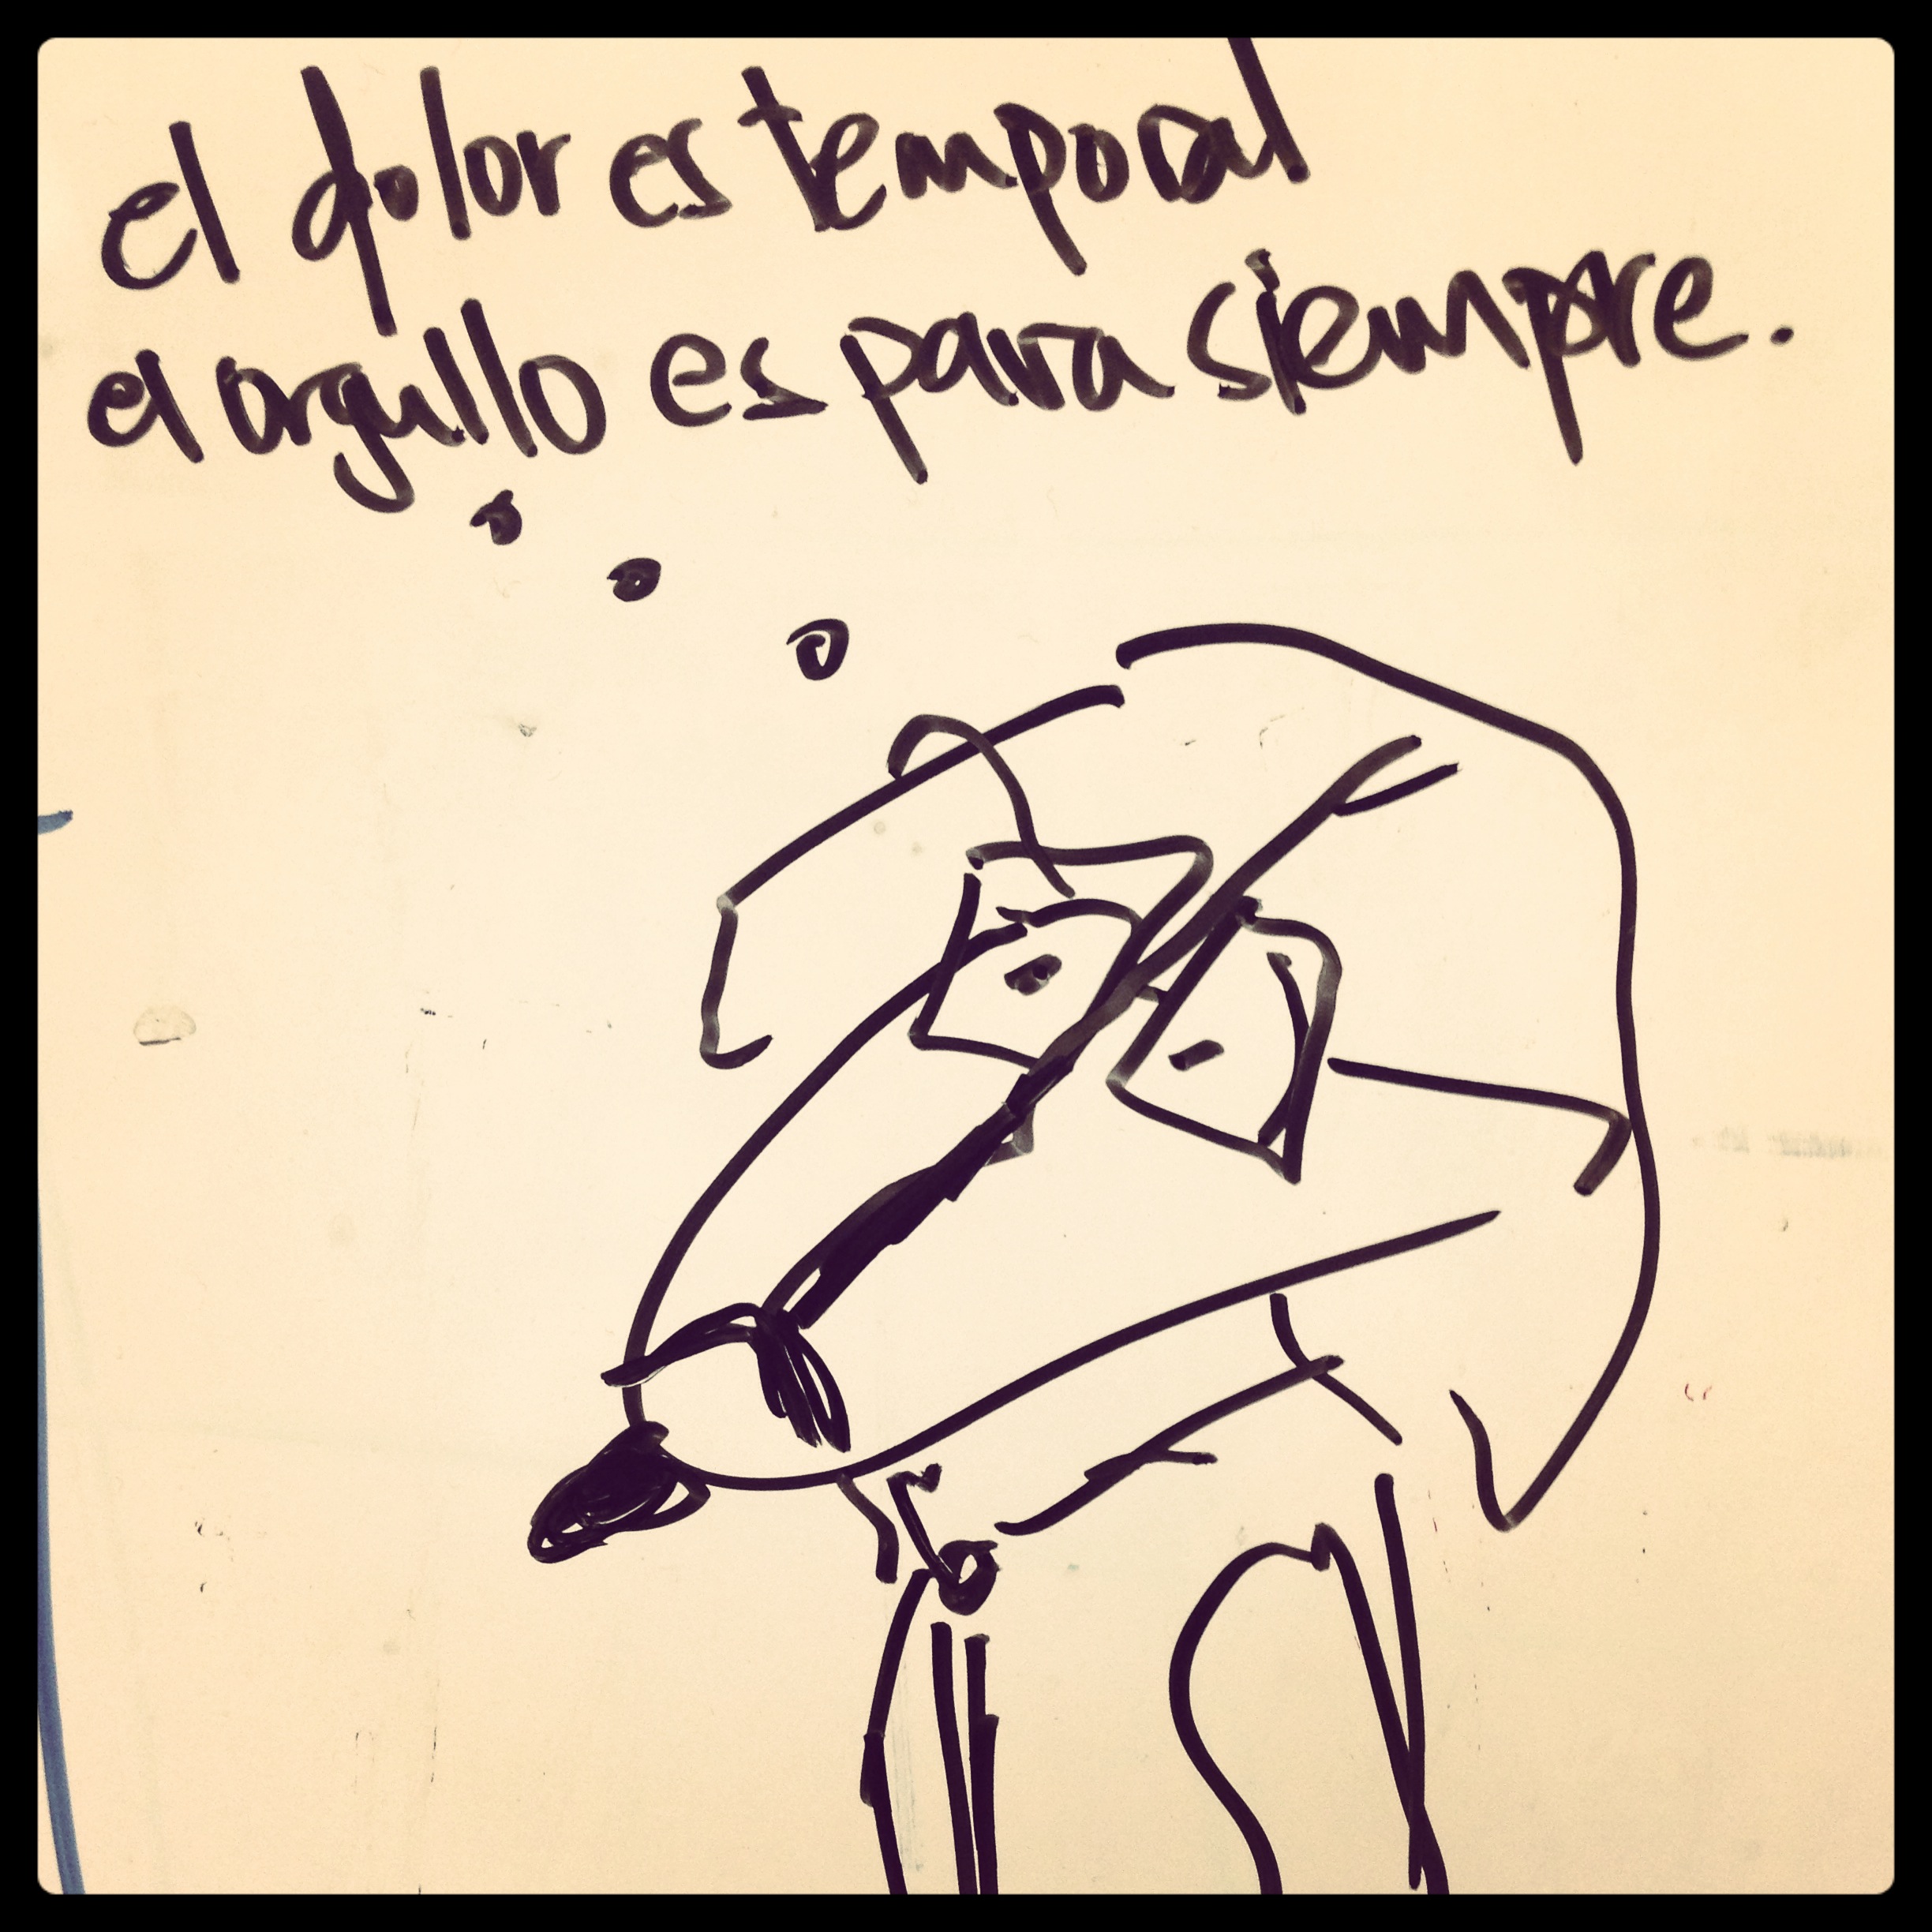 el dolor es temporal
el orgullo es para siempre.